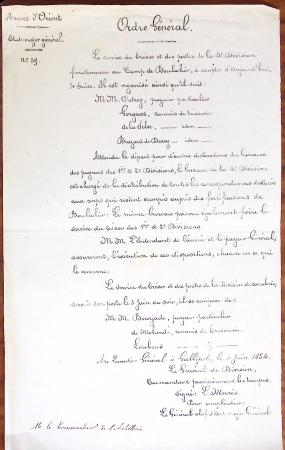 Armée d'Orient
Etat-major général.
N° 59.
Ordre Général.
Le service du trésor et des postes de la 3e Division
fonctionnera au Camp de Boulahir, à compter d'aujourd'hui,
Juin. Il est organisé ainsi qu'il suit:
M.M. payeur particulier
commis de trésorerie
de la idem
idem
Attendu le départ pour d'autres destinations des bureaux
des payeurs des 1re & 2e Divisions, le bureau de la 3e Division
est chargé de la distribution de toutes les correspondances destinées
aux corps qui restent campés auprès des fortifications de
Boulahir. Le même bureau pourra également faire le
service du trésor des 1re et 2e Divisions.
M.M. l'Intendant de l'armée et le payeur Général,
assureront, l'exécution de ces dispositions, chacun en ce qui
le concerne.
Le service du trésor et des postes de la Division de cavalerie,
sera à son poste le 5 Juin au soir, il se compose de:
M.M. Bourjade, payeur particulier
de commis de trésorerie
Au Quartier Général à Gallipoli, le Juin 1854.
Le Général de Division,
Commandant provisoirement les troupes,
signé:
Pour ampliation:
Le Général chef d'Etat-major Général
M. le Commandant de l'Artillerie